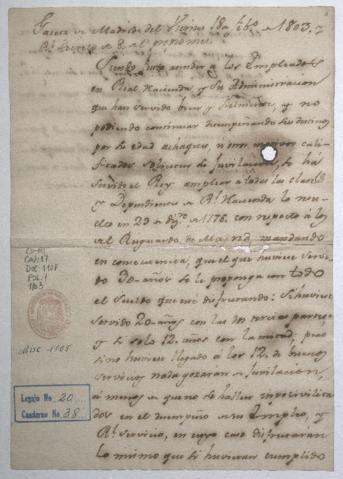 Gaceta de Madrid del Viernes 18 de 1803
Rl. Decreto de
Siendo justo atender á los Empleados
en Real Hacienda, y su Administracion
que han servido bien y fielmente, y no
pudiendo continuar desempeñando sus destinos
por su edad achaques, u otros motivos cali-
ficados soliciten su Jubilacion, se há
servido el Rey ampliar a todas las clases
y Dependientes de Rl. Hacienda lo resu-
elto en 29 de 1778 con respecto á los
del Resguardo de Madrid, mandando
en consecuencia, que el que huviere servi-
do 30 años se le proponga con todo
el sueldo que esté disfrutando: Si huviere
servido 20 años con las dos terceras partes
y de solo 12 años con la mitad; pero
si no huviere llegado á los 12 de buenos
servicios nada gozaran de Jubilacion,
á menos de que no se hallen imposivilita-
dos en el desempeño de su Empleo, y
Rl. Servicio, en cuyo caso disfrutaran
lo mismo que si huvieran cumplido
CO-H1
CAJ: 17
DOC: 1108
FOL: 1
1803
DOC 1108
Legajo No 20
Cuaderno No 38